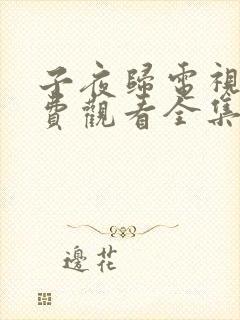 子夜歸電視
費觀看全集
邊花